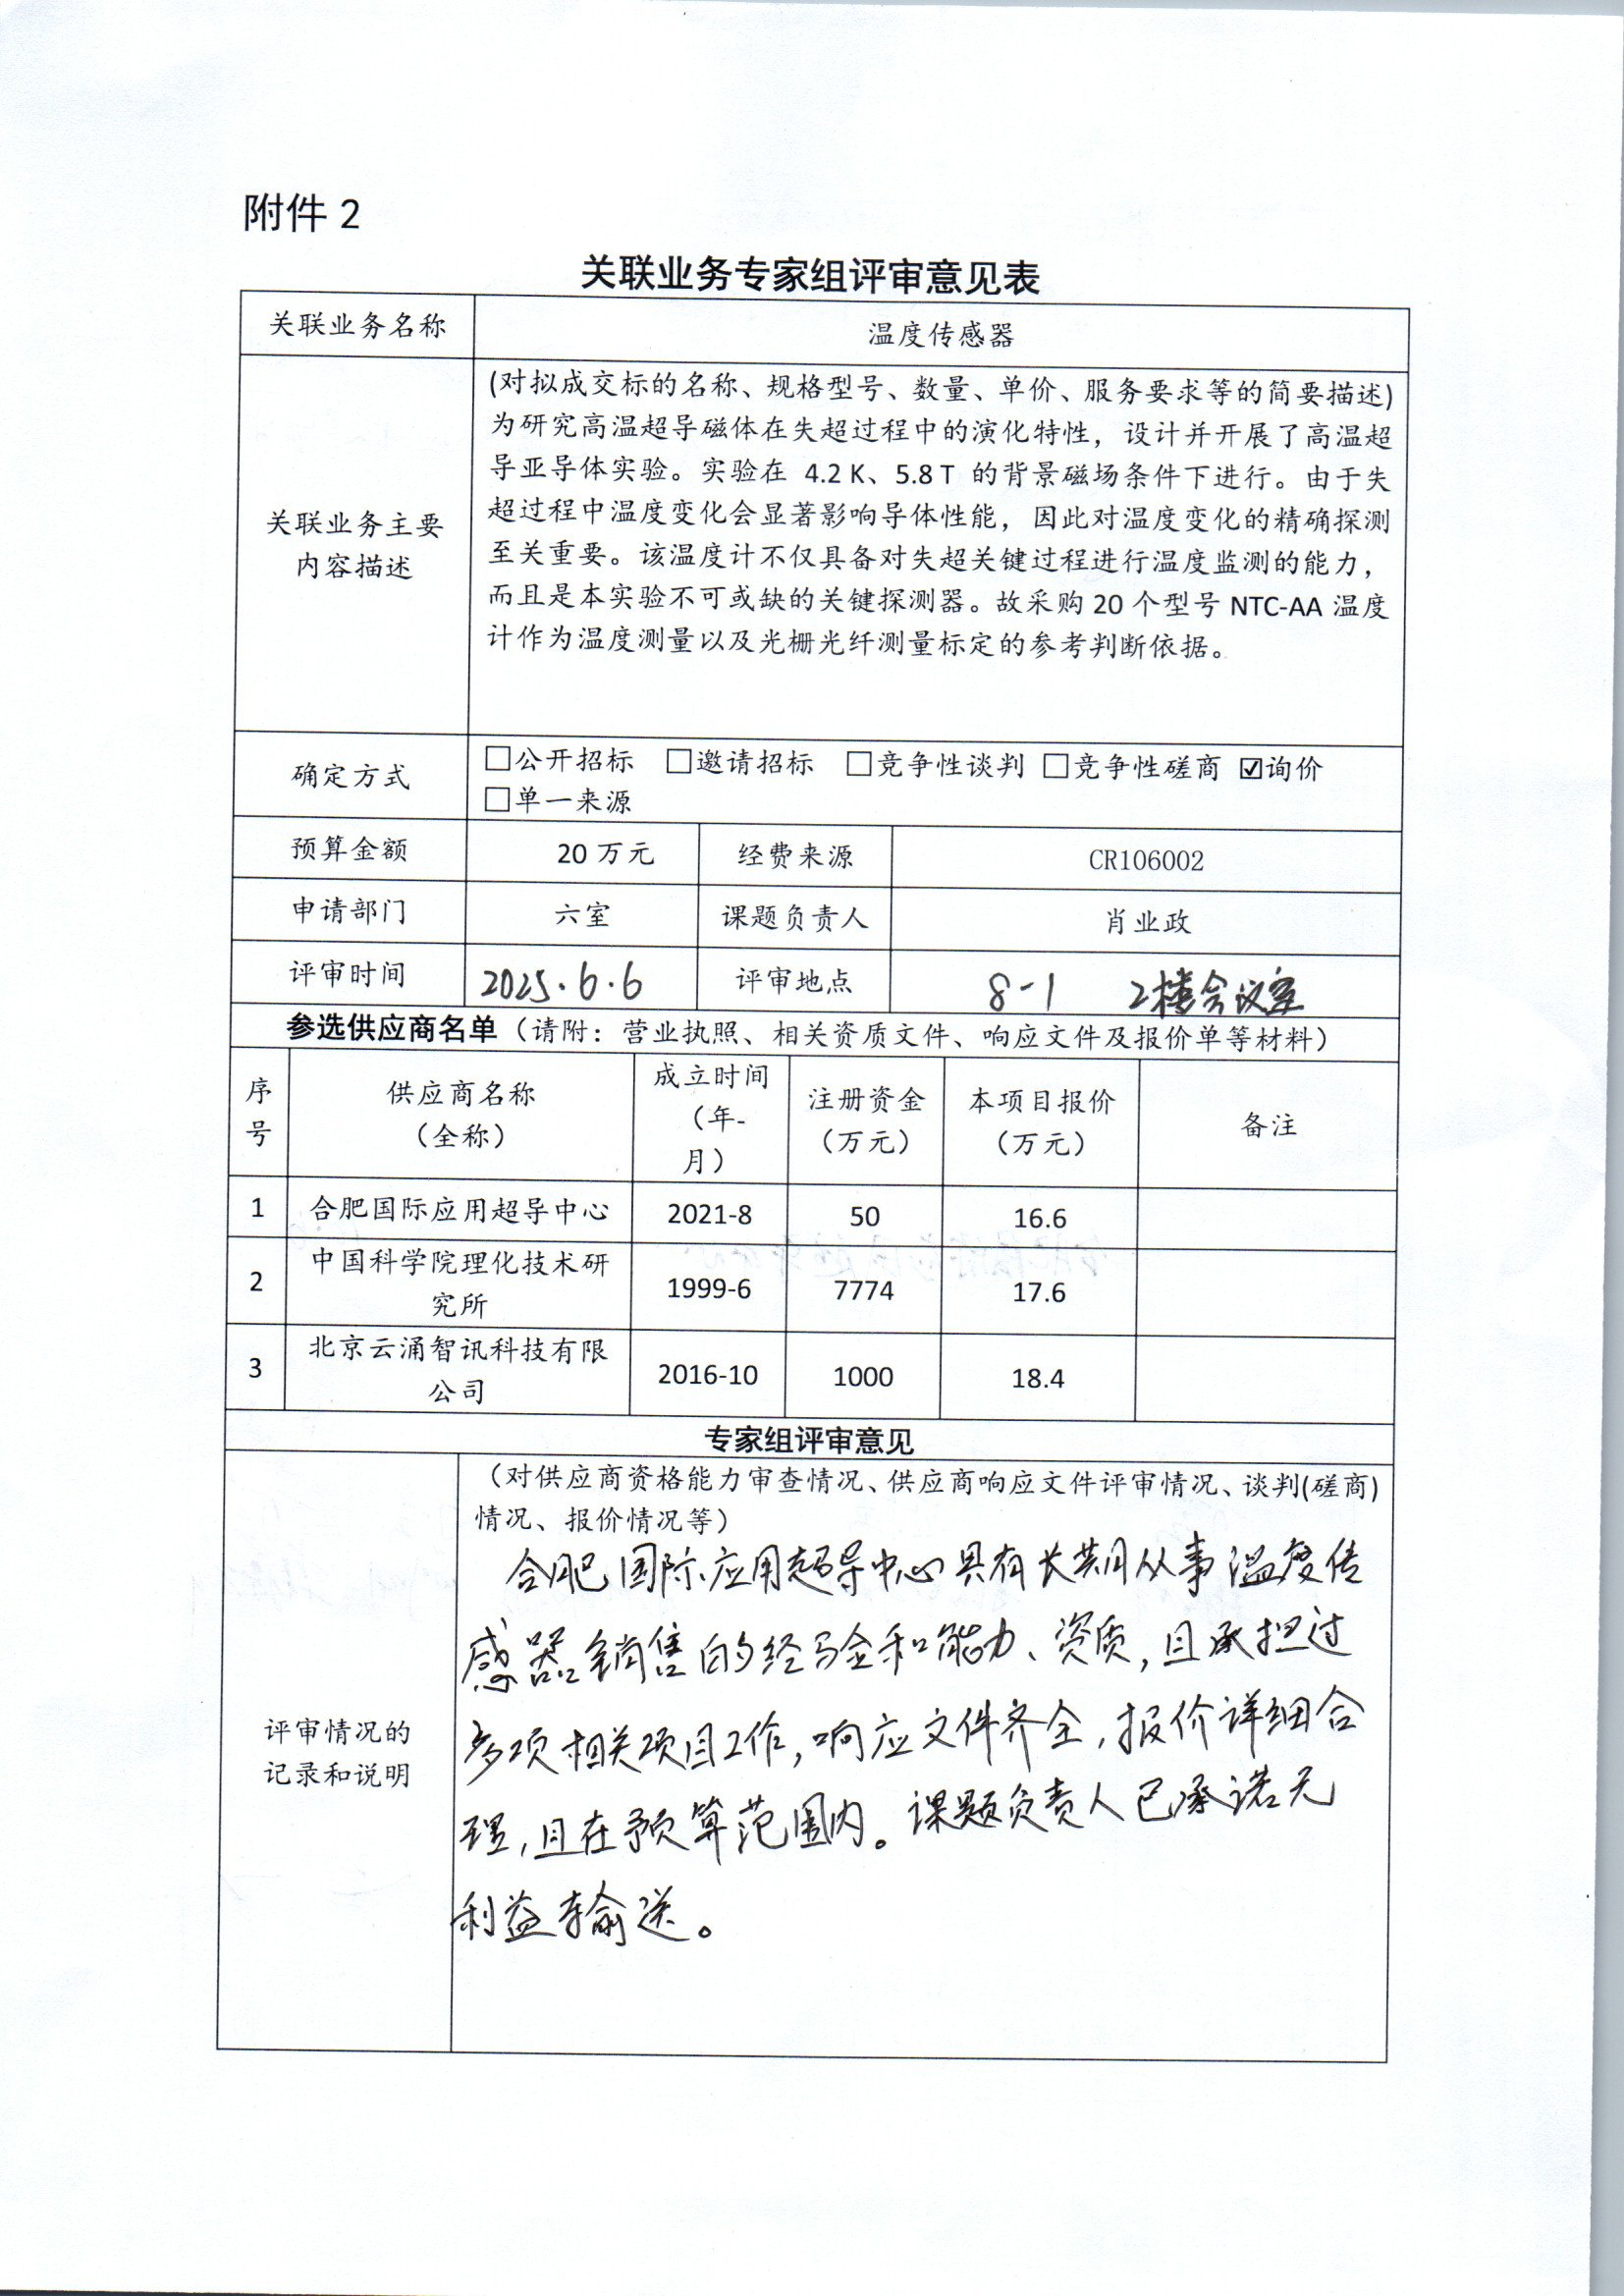 附件 2
关联业务专家组评审意见表
关联业务名称 温度传感器
关联业务主要
内容描述
(对拟成交标的名称、规格型号、数量、单价、服务要求等的简要描述)
为研究高温超导磁体在失超过程中的演化特性，设计并开展了高温超
导亚导体实验。实验在 4.2 K、5.8 T 的背景磁场条件下进行。由于失
超过程中温度变化会显著影响导体性能，因此对温度变化的精确探测
至关重要。该温度计不仅具备对失超关键过程进行温度监测的能力，
而且是本实验不可或缺的关键探测器。故采购 20 个型号 NTC-AA 温度
计作为温度测量以及光栅光纤测量标定的参考判断依据。
确定方式
☐公开招标 ☐邀请招标 ☐竞争性谈判 ☐竞争性磋商 ☑询价
☐单一来源
预算金额 20 万元 经费来源 CR106002
申请部门 六室 课题负责人 肖业政
评审时间 2025.6.6 评审地点 8-1 2楼会议室
参选供应商名单（请附：营业执照、相关资质文件、响应文件及报价单等材料）
序
号
供应商名称
（全称）
成立时间
（年-
月）
注册资金
（万元）
本项目报价
（万元）
备注
1 合肥国际应用超导中心 2021-8 50 16.6
2 中国科学院理化技术研
究所 1999-6 7774 17.6
3 北京云涌智讯科技有限
公司 2016-10 1000 18.4
专家组评审意见
评审情况的
记录和说明
（对供应商资格能力审查情况、供应商响应文件评审情况、谈判(磋商)
情况、报价情况等）
合肥国际应用超导中心具有长期从事温度传
感器销售的经验和能力、资质，且承担过
多项相关项目工作，响应文件齐全，报价详细合
理，且在预算范围内。课题负责人已承诺无
利益输送。